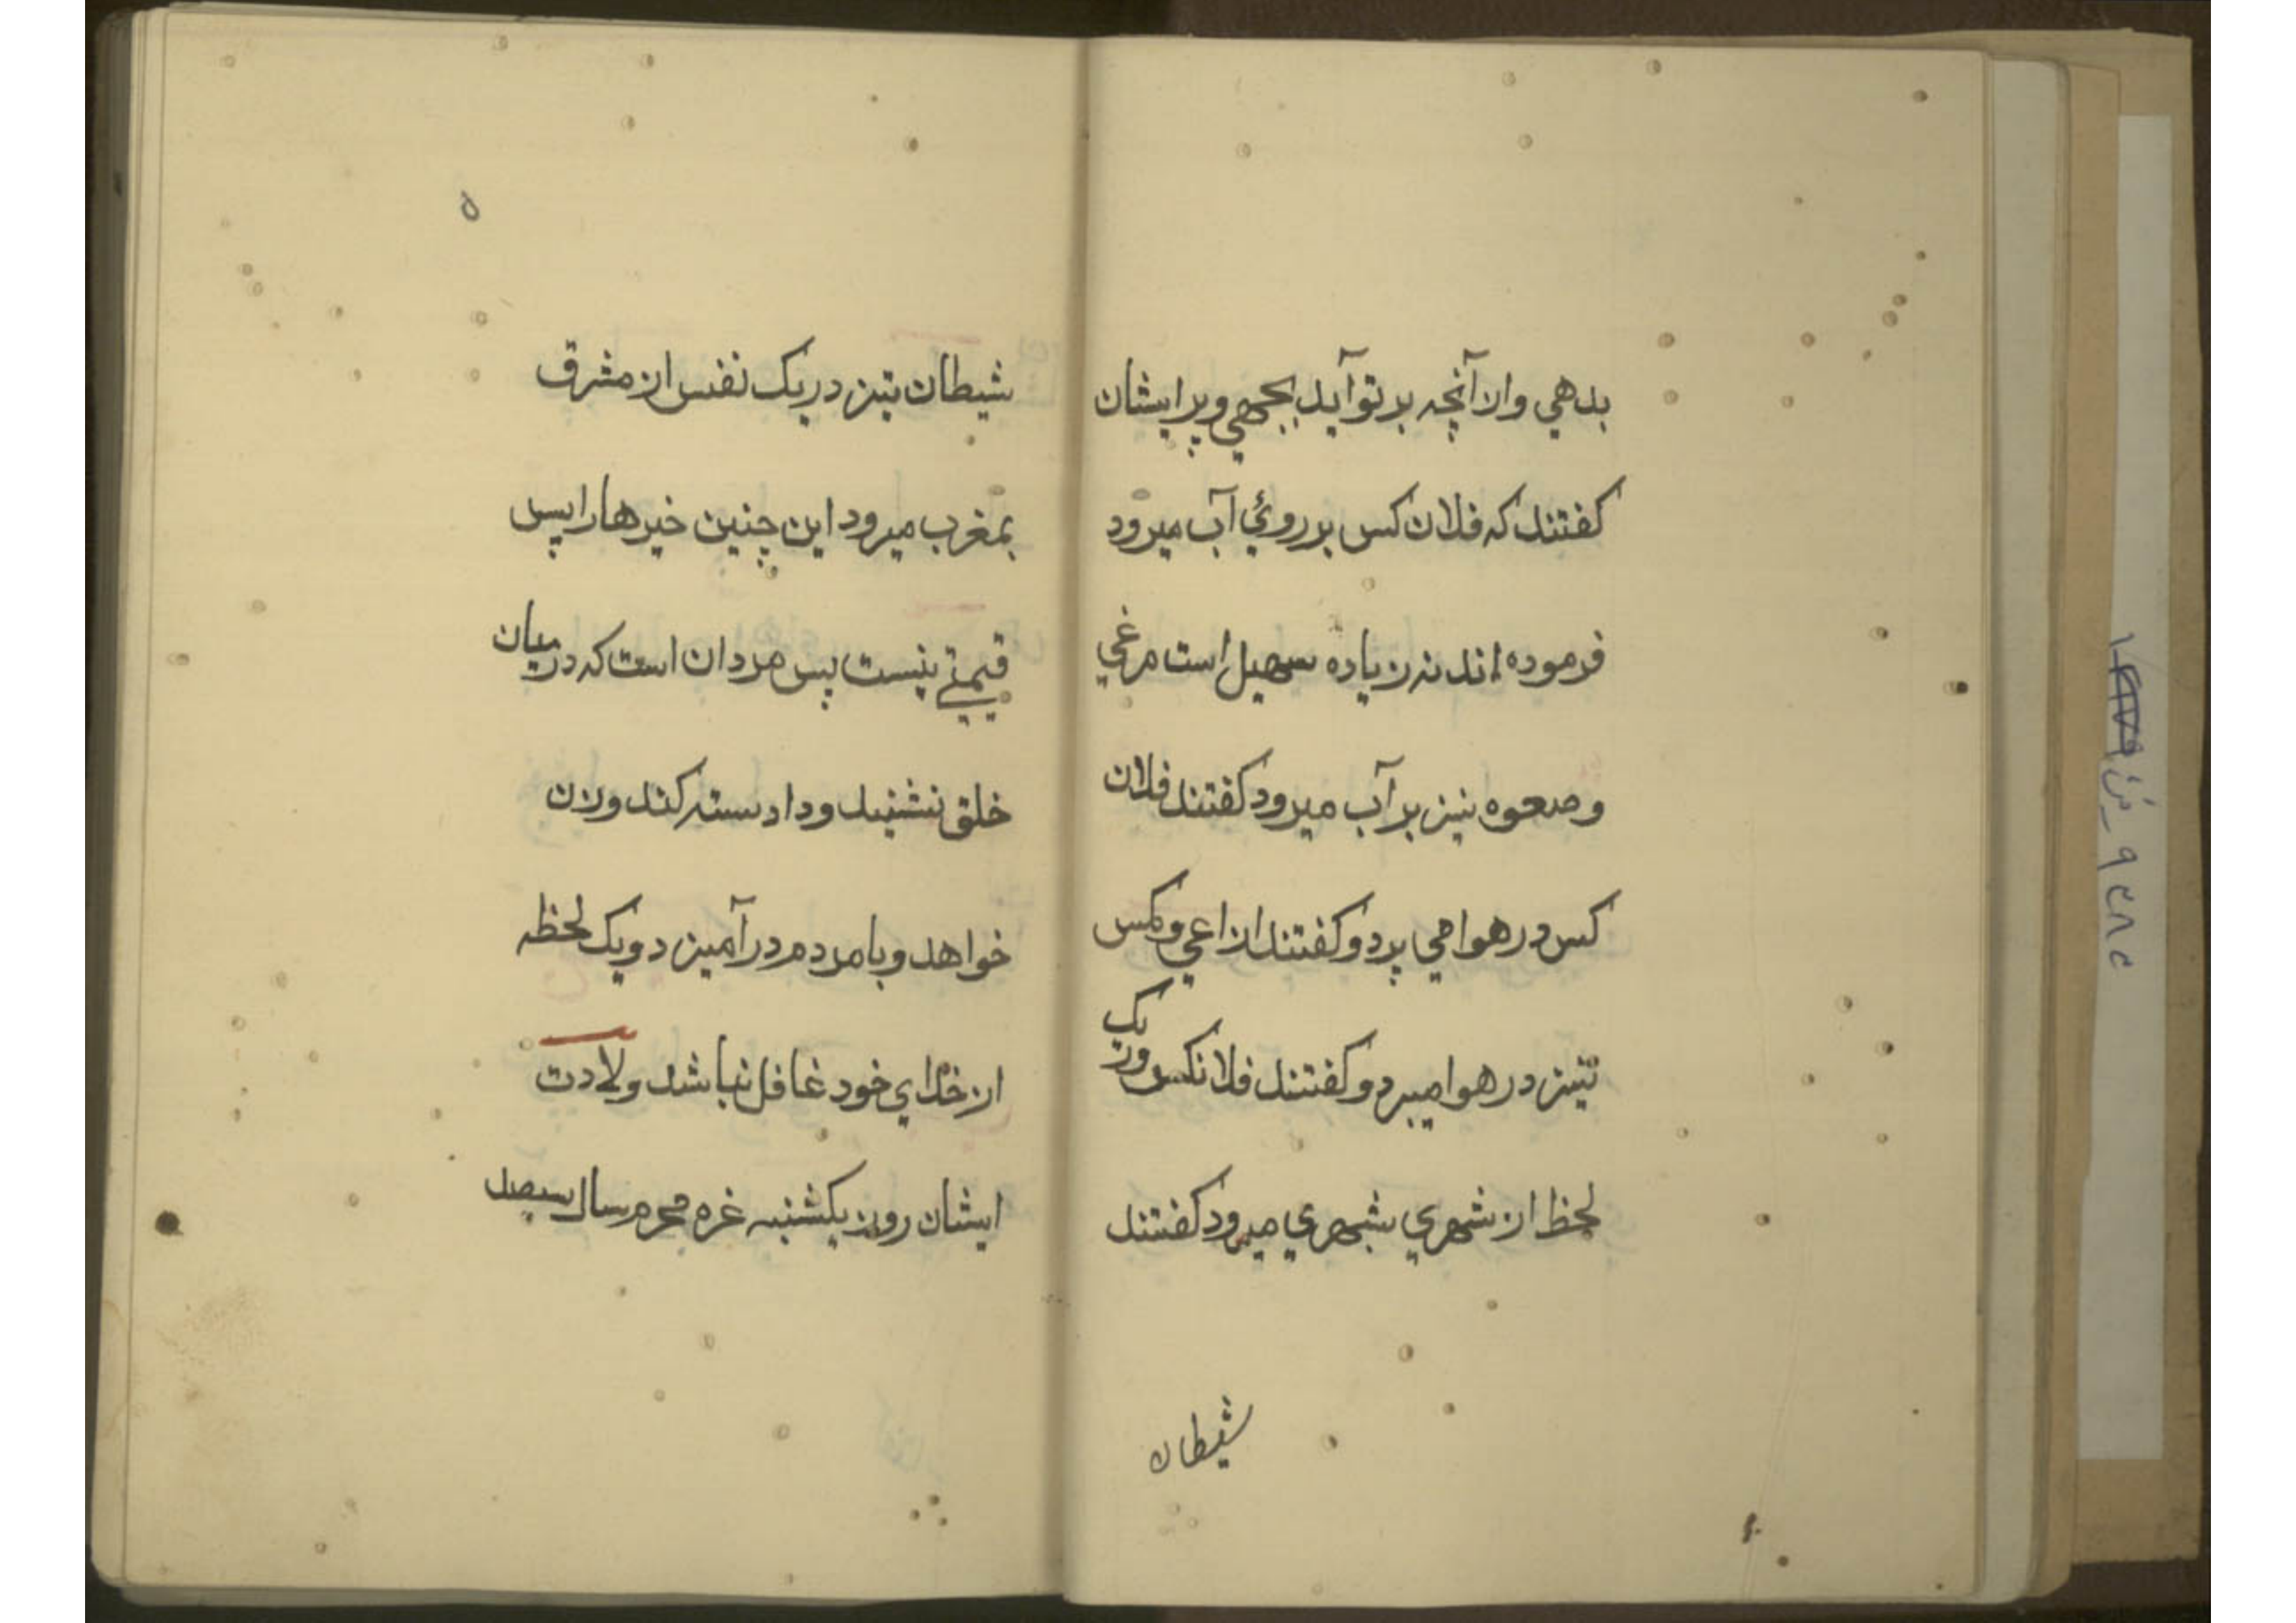 بدهي وازآنچه بر تو آيد بجهي و بر ايشان
كفتند كه فلان كس بر روئي آب ميرود
فرموده اند نه زياده سهيل است مرغي
و صعوه نيز بر آب ميرود كفتند فلان
كس در هوا مي پرد و كفتند از اعي و مكس
نيز در هوا ميبرد و كفتند فلانكس در يک
لحظ از شهري بشهري ميرود كفتند
شيطان
۵
شيطان نيز در يک نفس از مشرق
بمغرب ميرود اين چنين خيرها را پس
قيمتي نيست پس مردان است كه درميان
خلق نشنيد و داد ستد كند و زن
خواهد و با مردم در آميزد و يک لحظه
از خداي خود غافل نباشد ولادت
ايشان روز يكشنبه غره محرم سال سيصد